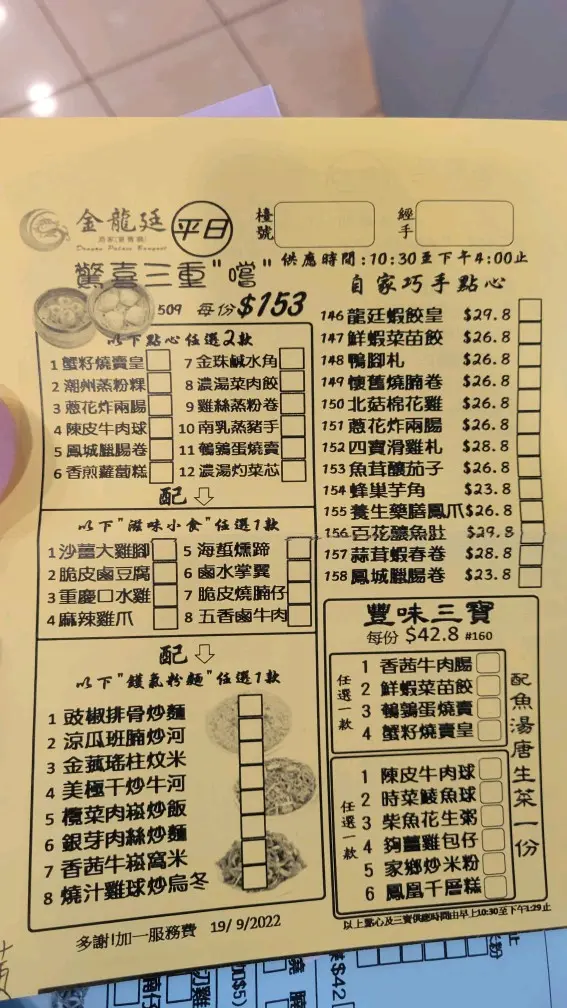 金龍廷
Dragon Palace Banquet
平日
檯號
經手
供應時間:10:30至下午4:00止
驚喜三重"嚐"
509 每份$153
以下點心任選2款
1 蟹籽燒賣皇
2 潮州蒸粉粿
3 蔥花炸兩腸
4 陳皮牛肉球
5 鳳城臘腸卷
6 香煎蘿蔔糕
7 金珠鹹水角
8 濃湯菜肉餃
9 雞絲蒸粉卷
10 南乳蒸豬手
11 鵪鶉蛋燒賣
12 濃湯灼菜芯
配
以下"滋味小食"任選1款
1 沙薑大雞腳
2 脆皮鹵豆腐
3 重慶口水雞
4 麻辣雞爪
5 海蜇燻蹄
6 鹵水掌翼
7 脆皮燒腩仔
8 五香鹵牛肉
配
以下"鑊氣粉麵"任選1款
1 豉椒排骨炒麵
2 涼瓜班腩炒河
3 金菰瑤柱炆米
4 美極干炒牛河
5 欖菜肉崧炒飯
6 銀芽肉絲炒麵
7 香茜牛崧窩米
8 燒汁雞球炒烏冬
多謝!加一服務費 19/9/2022
自家巧手點心
146 龍廷蝦餃皇 $29.8
147 鮮蝦菜苗餃 $26.8
148 鴨腳札 $26.8
149 懷舊燒腩卷 $26.8
150 北菇棉花雞 $26.8
151 蔥花炸兩腸 $26.8
152 四寶滑雞札 $28.8
153 魚茸釀茄子 $26.8
154 蜂巢芋角 $23.8
155 養生藥膳鳳爪 $26.8
156 百花釀魚肚 $29.8
157 蒜茸蝦春卷 $28.8
158 鳳城臘腸卷 $23.8
豐味三寶
每份 $42.8 #160
任選一款
1 香茜牛肉腸
2 鮮蝦菜苗餃
3 鵪鶉蛋燒賣
4 蟹籽燒賣皇
任選一款
1 陳皮牛肉球
2 時菜鯪魚球
3 柴魚花生粥
4 夠薑雞包仔
5 家鄉炒米粉
6 鳳凰千層糕
配魚湯唐生菜一份
以上點心及三寶供應時間由早上10:30至下午1:29止